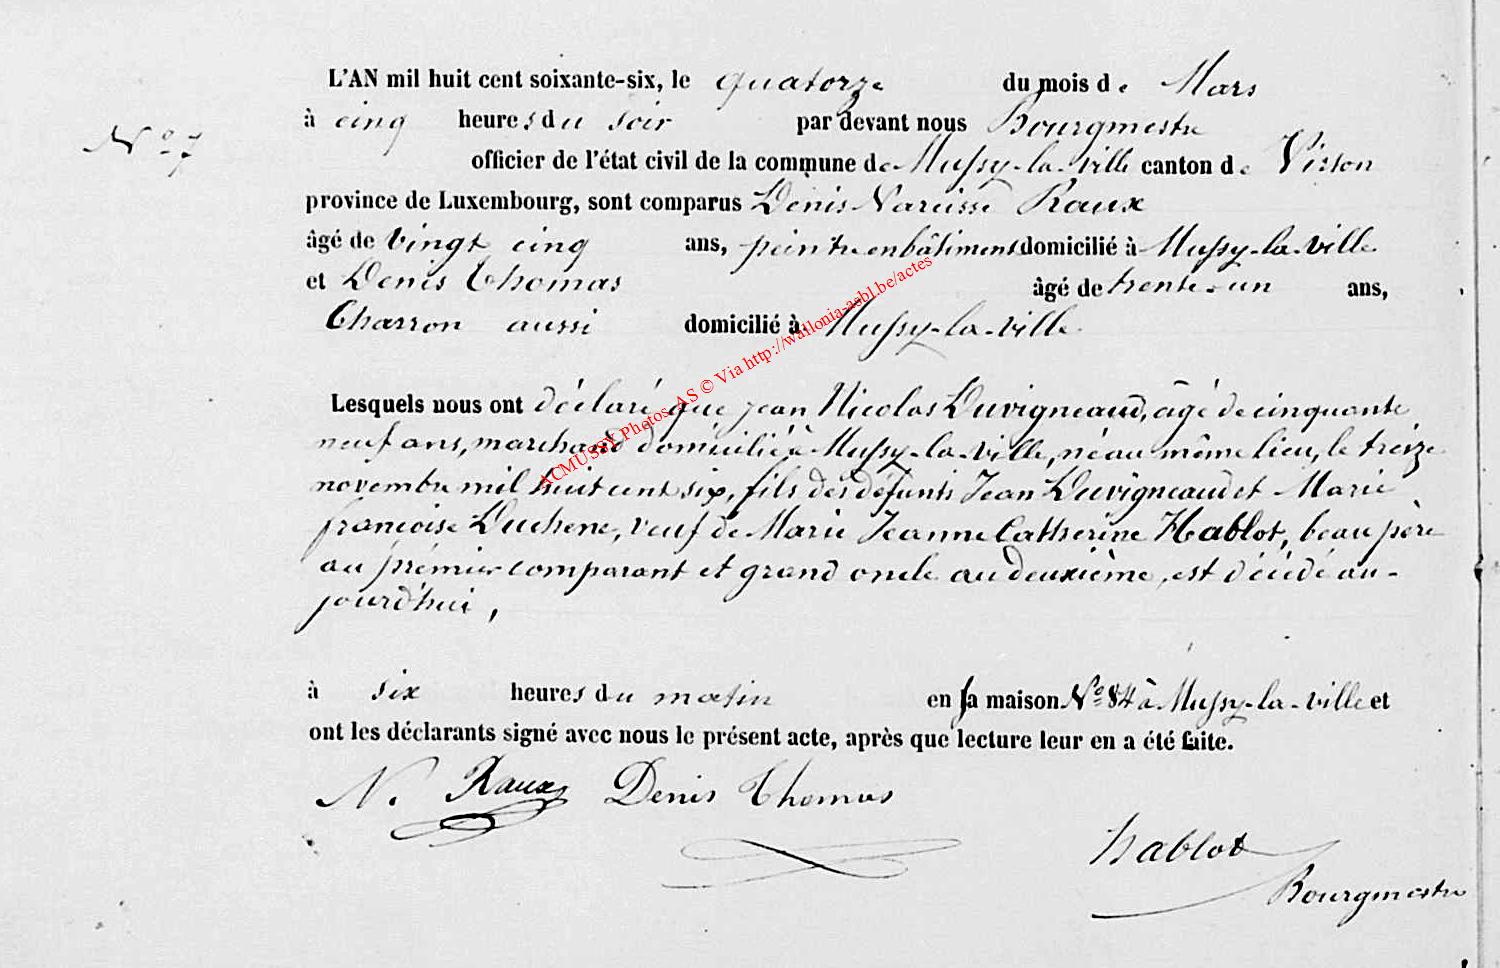 L'AN mil huit cent soixante-six, le quatorze du mois de Mars
à cinq heures du soir par devant nous Bourgmestre
N° 7
officier de l'état civil de la commune de Mussy-la-ville canton de Virton
province de Luxembourg, sont comparus Denis Narcisse Raux
âgé de vingt cinq ans, peintre en bâtiments domicilié à Mussy-la-ville
et Denis Thomas âgé de trente-un ans,
Charron aussi domicilié à Mussy-la-ville
Lesquels nous ont déclaré que Jean Nicolas Duvigneaud, âgé de cinquante
neuf ans, marchand domicilié à Mussy-la-ville, né au même lieu, le treize
novembre mil huit cent six, fils des défunts Jean Duvigneaud et Marie
françoise Duchene, veuf de Marie Jeanne Catherine Hablot, beau père
au prémier comparant et grand oncle au deuxième, est décédé au-
jourd'hui,
à six heures du matin en sa maison N° 84 à Mussy-la-ville et
ont les déclarants signé avec nous le présent acte, après que lecture leur en a été faite.
N. Raux Denis Thomas
hablot
Bourgmestre
ACMUSSY Photos AS © Via http://wallonia-asbl.be/actes